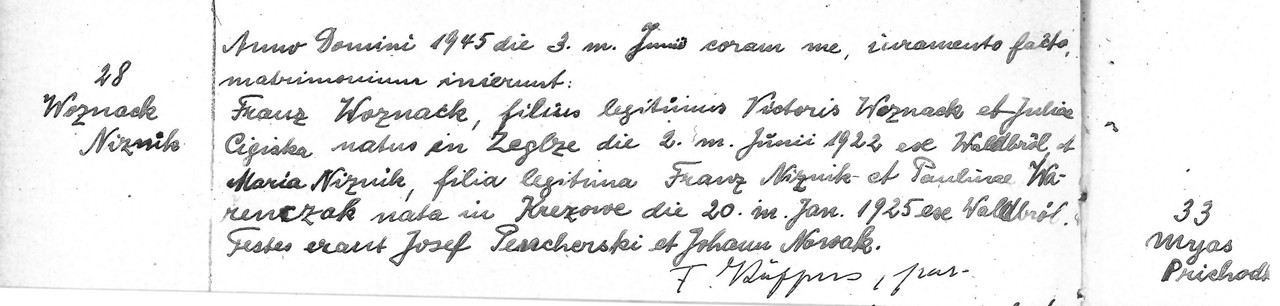 28
Woznack
Niznik
Anno Domini 1945 die 3. m. Junii coram me, iuramento facto,
matrimonium inierunt:
Franz Woznack, filius legitimus Victoris Woznack et Juliae
Cigiska natus in Zeglze die 2. m. Junii 1922 ex Waldbröl et
Maria Niznik, filia legitima Franz Niznik et Paulinae Wa-
renczak nata in Krezowe die 20. m. Jan. 1925 ex Waldbröl.
Testes erant Josef Pesscherski et Johann Nowak.
F. Küppers, par.
33
Myas
Prichod